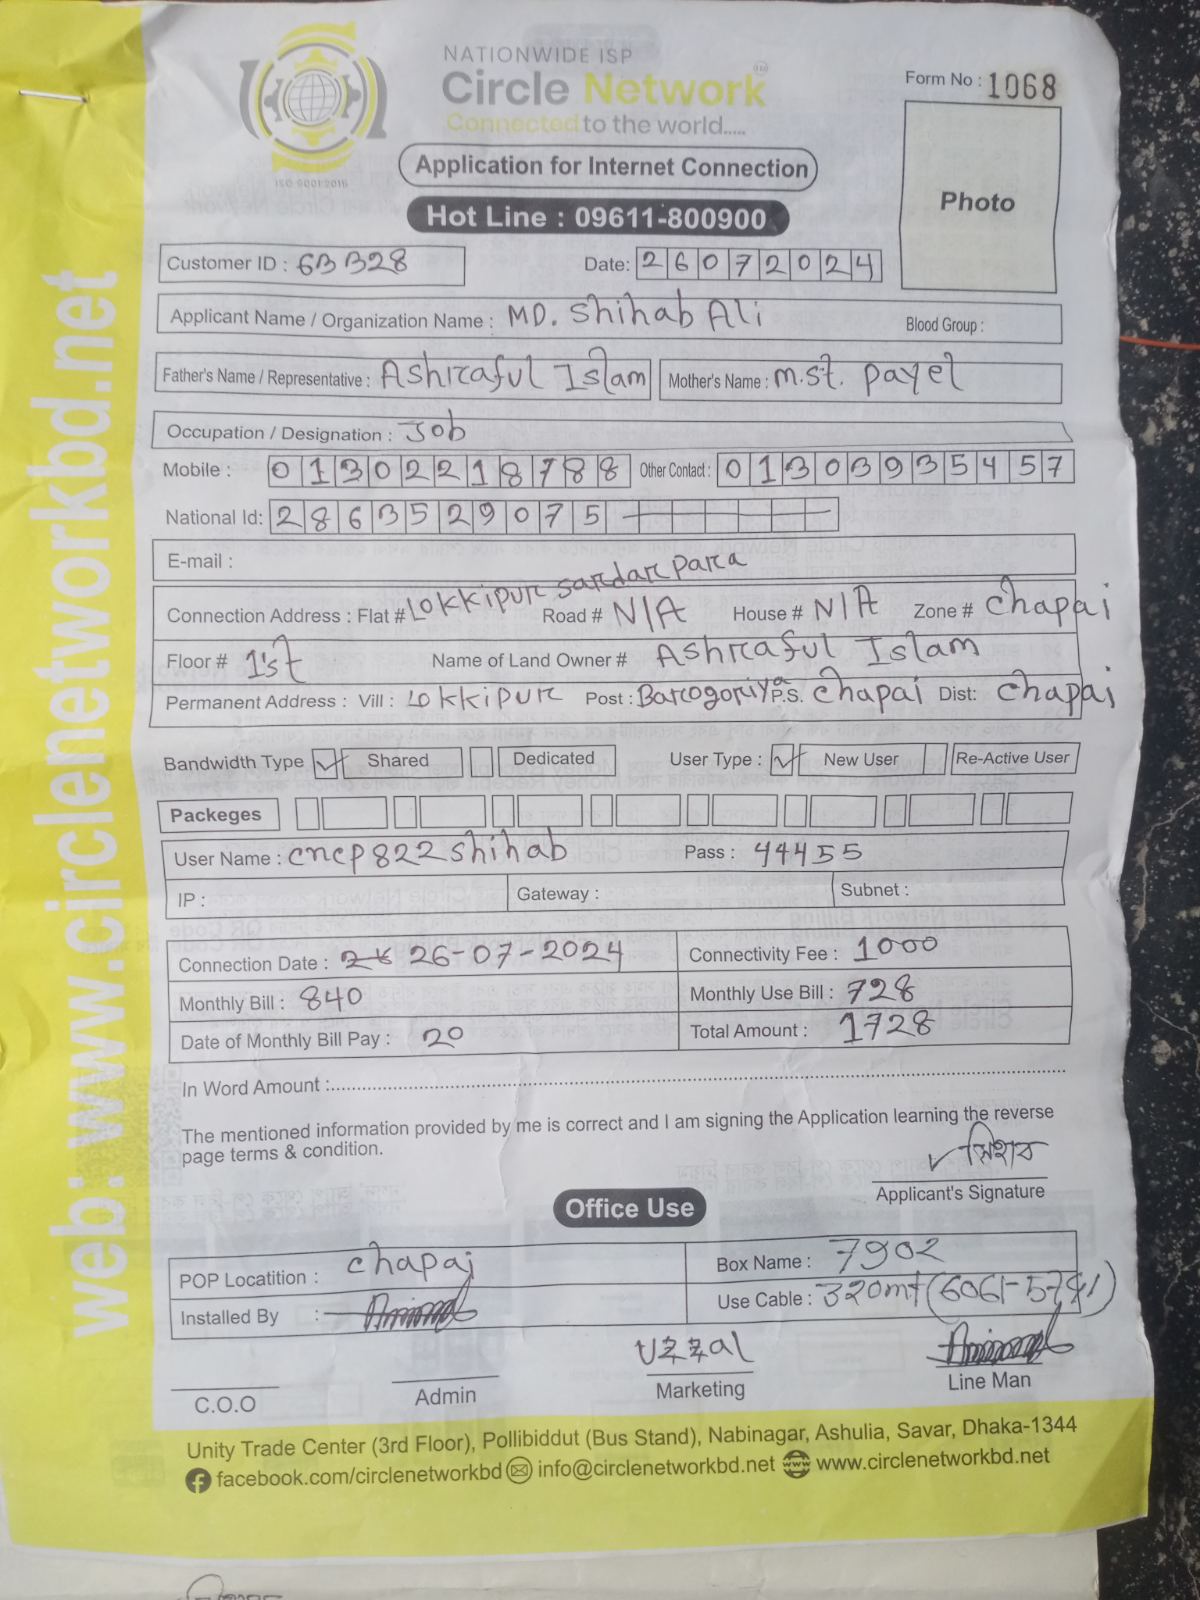 NATIONWIDE ISP
Circle Network
Connected to the world.....
ISO 9001:2015
Form No : 1068
Application for Internet Connection
Photo
Hot Line : 09611-800900
Customer ID : 63328 Date: 26072024
Applicant Name / Organization Name : MD. Shihab Ali Blood Group :
Father's Name / Representative : Ashraful Islam Mother's Name : m.st. payel
Occupation / Designation : Job
Mobile : 01302218788 Other Contact : 01303935457
National Id: 2863529075
E-mail :
Connection Address : Flat # Lokkipur sardar para Road # N/A House # N/A Zone # chapai
Floor # 1'st Name of Land Owner # Ashraful Islam
Permanent Address : Vill : Lokkipur Post : Barogoriya P.S. chapai Dist: chapai
Bandwidth Type Shared Dedicated User Type : New User Re-Active User
Packeges
User Name : cncp822shihab Pass : 44455
IP : Gateway : Subnet :
Connection Date : 26-07-2024 Connectivity Fee : 1000
Monthly Bill : 840 Monthly Use Bill : 728
Date of Monthly Bill Pay : 20 Total Amount : 1728
In Word Amount :
The mentioned information provided by me is correct and I am signing the Application learning the reverse
page terms & condition.
সিহাব
Applicant's Signature
Office Use
POP Locatition : chapai Box Name : 7902
Installed By : Use Cable : 320mt (6061-5741)
Uzzal
C.O.O Admin Marketing Line Man
Unity Trade Center (3rd Floor), Pollibiddut (Bus Stand), Nabinagar, Ashulia, Savar, Dhaka-1344
facebook.com/circlenetworkbd info@circlenetworkbd.net www.circlenetworkbd.net
web: www.circlenetworkbd.net